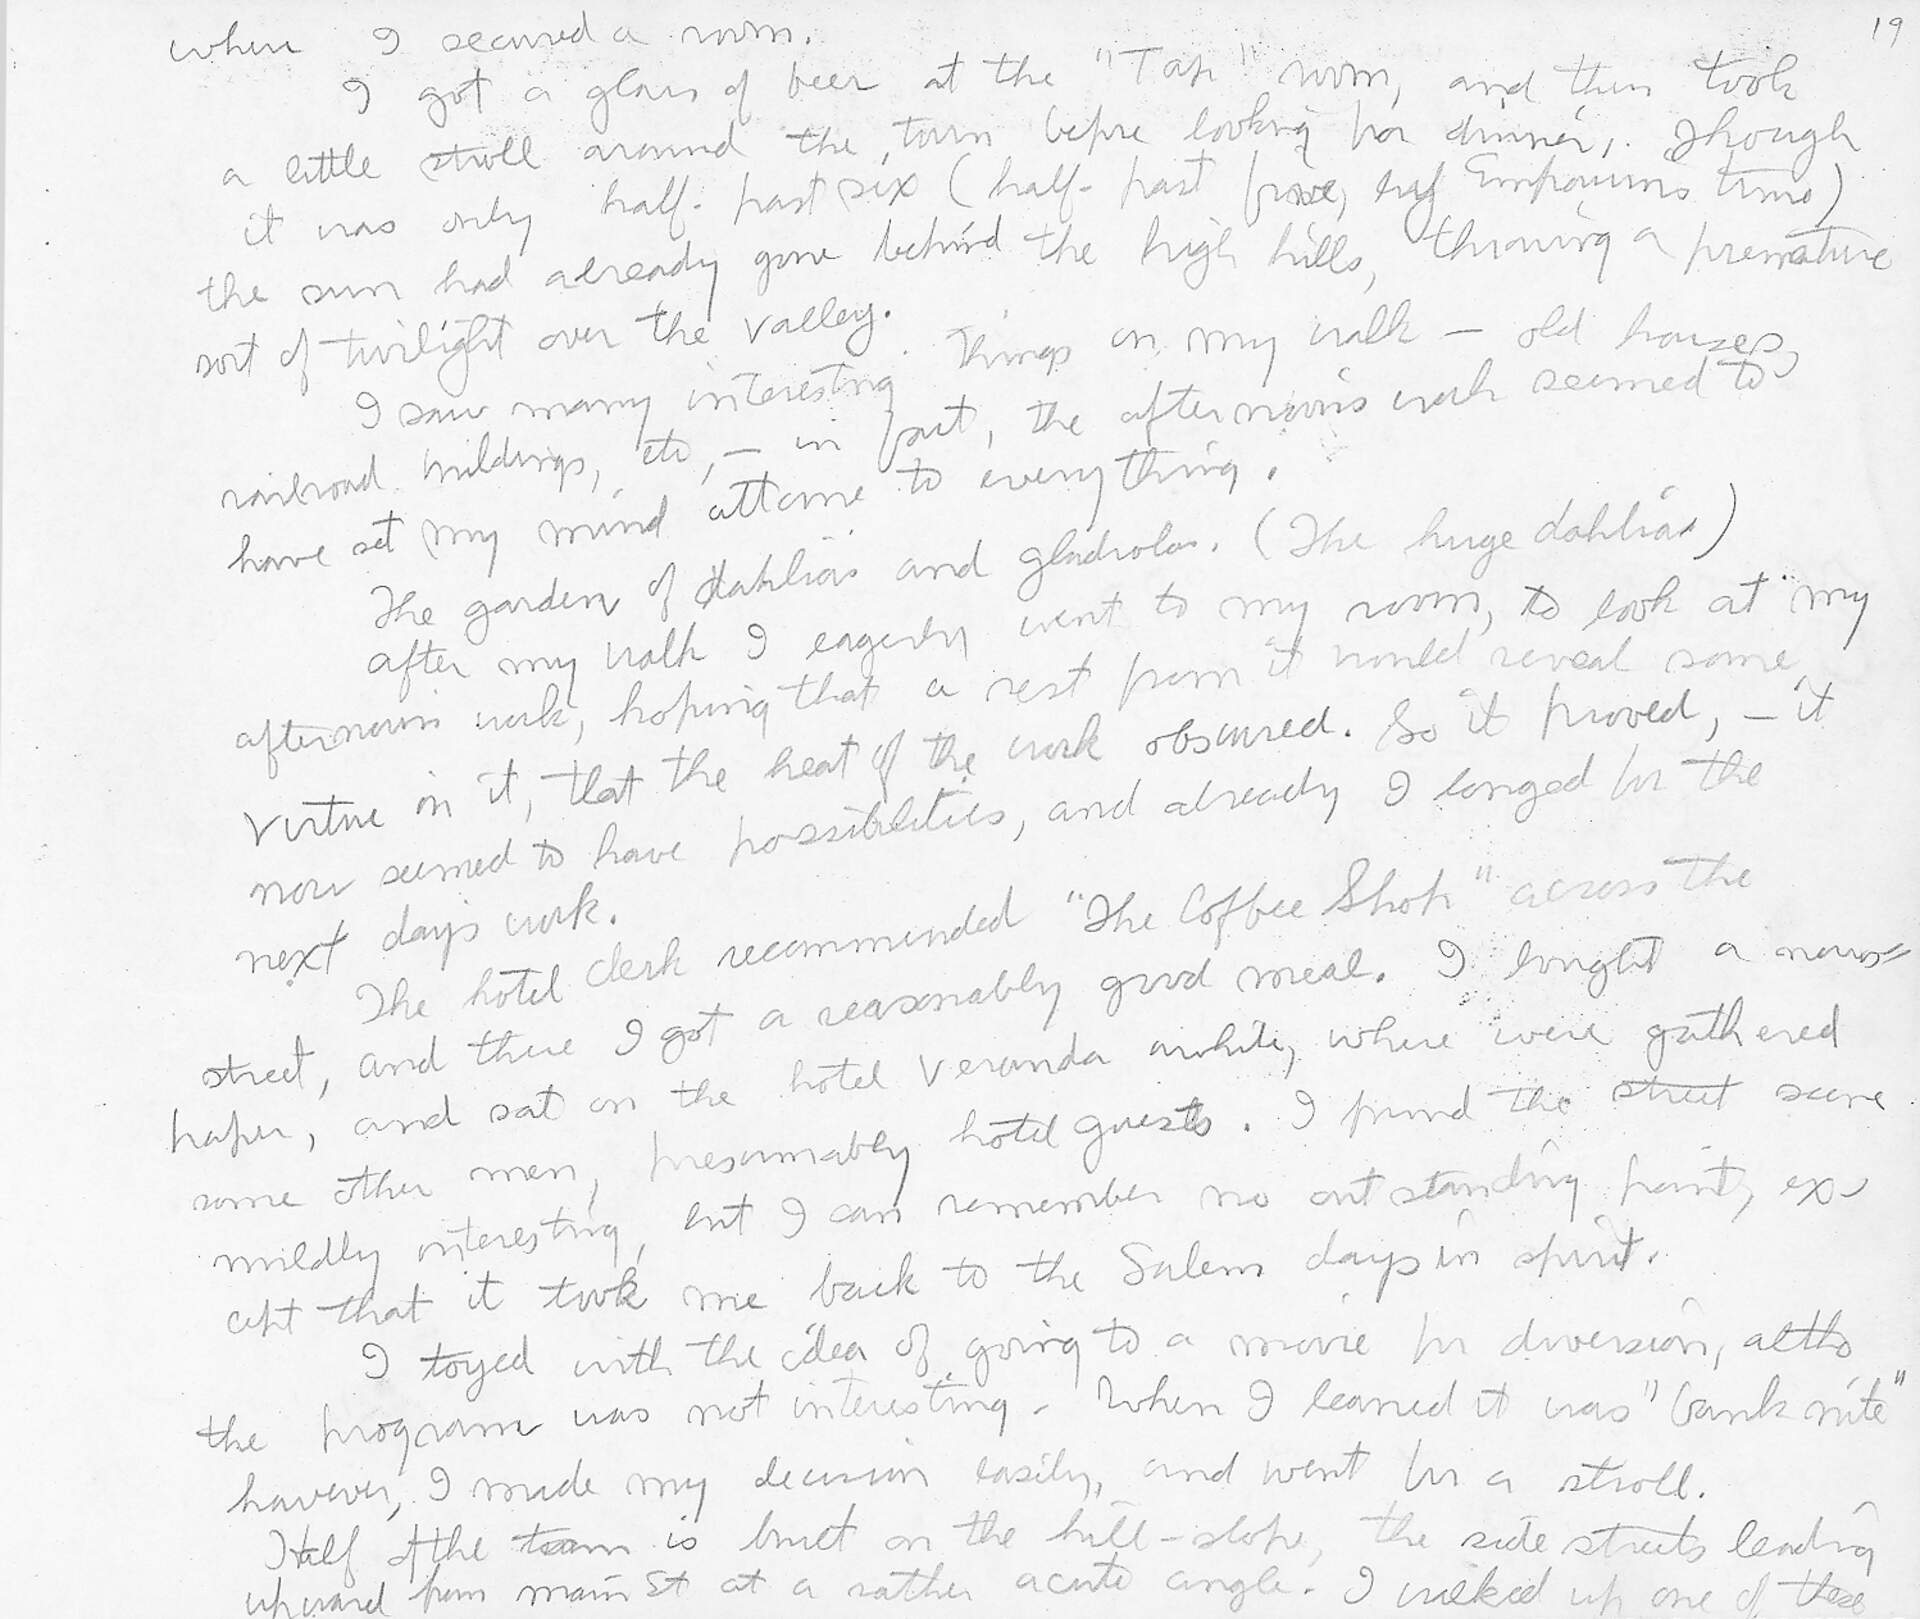 19
where I secured a room.
I got a glass of beer at the "Tap" room, and then took
a little stroll around the town before looking for dinner. Though
it was only half-past six (half-past five, by Emporium time)
the sun had already gone behind the high hills, throwing a premature
sort of twilight over the valley.
I saw many interesting things on my walk — old houses,
railroad buildings, etc, — in fact, the afternoon's work seemed to
have set my mind attune to everything.
The garden of dahlias and gladiolas. (The huge dahlias)
After my walk I eagerly went to my room, to look at my
afternoon work, hoping that a rest from it would reveal some
virtue in it, that the heat of the work obscured. So it proved, — it
now seemed to have possibilities, and already I longed for the
next day's work.
The hotel clerk recommended "The Coffee Shop" across the
street, and there I got a reasonably good meal. I bought a news=
paper, and sat on the hotel veranda awhile, where were gathered
some other men, presumably hotel guests. I found the street scene
mildly interesting, but I can remember no outstanding point, ex-
cept that it took me back to the Salem days in spirit.
I toyed with the idea of going to a movie for diversion, altho
the program was not interesting. When I learned it was "bank nite"
however, I made my decision easily, and went for a stroll.
Half of the town is built on the hill-slope, the side streets leading
upward from main St at a rather acute angle. I walked up one of these